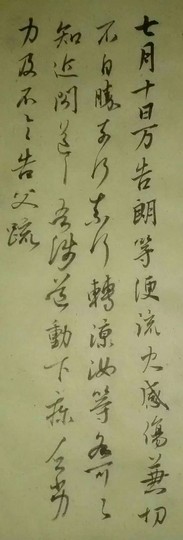 七月十日万告朗等便流火感傷兼切
不自勝奈何奈何轉涼汝等各可〻
知近問吾涉道動下疾乏劣
力及不〻告父疏